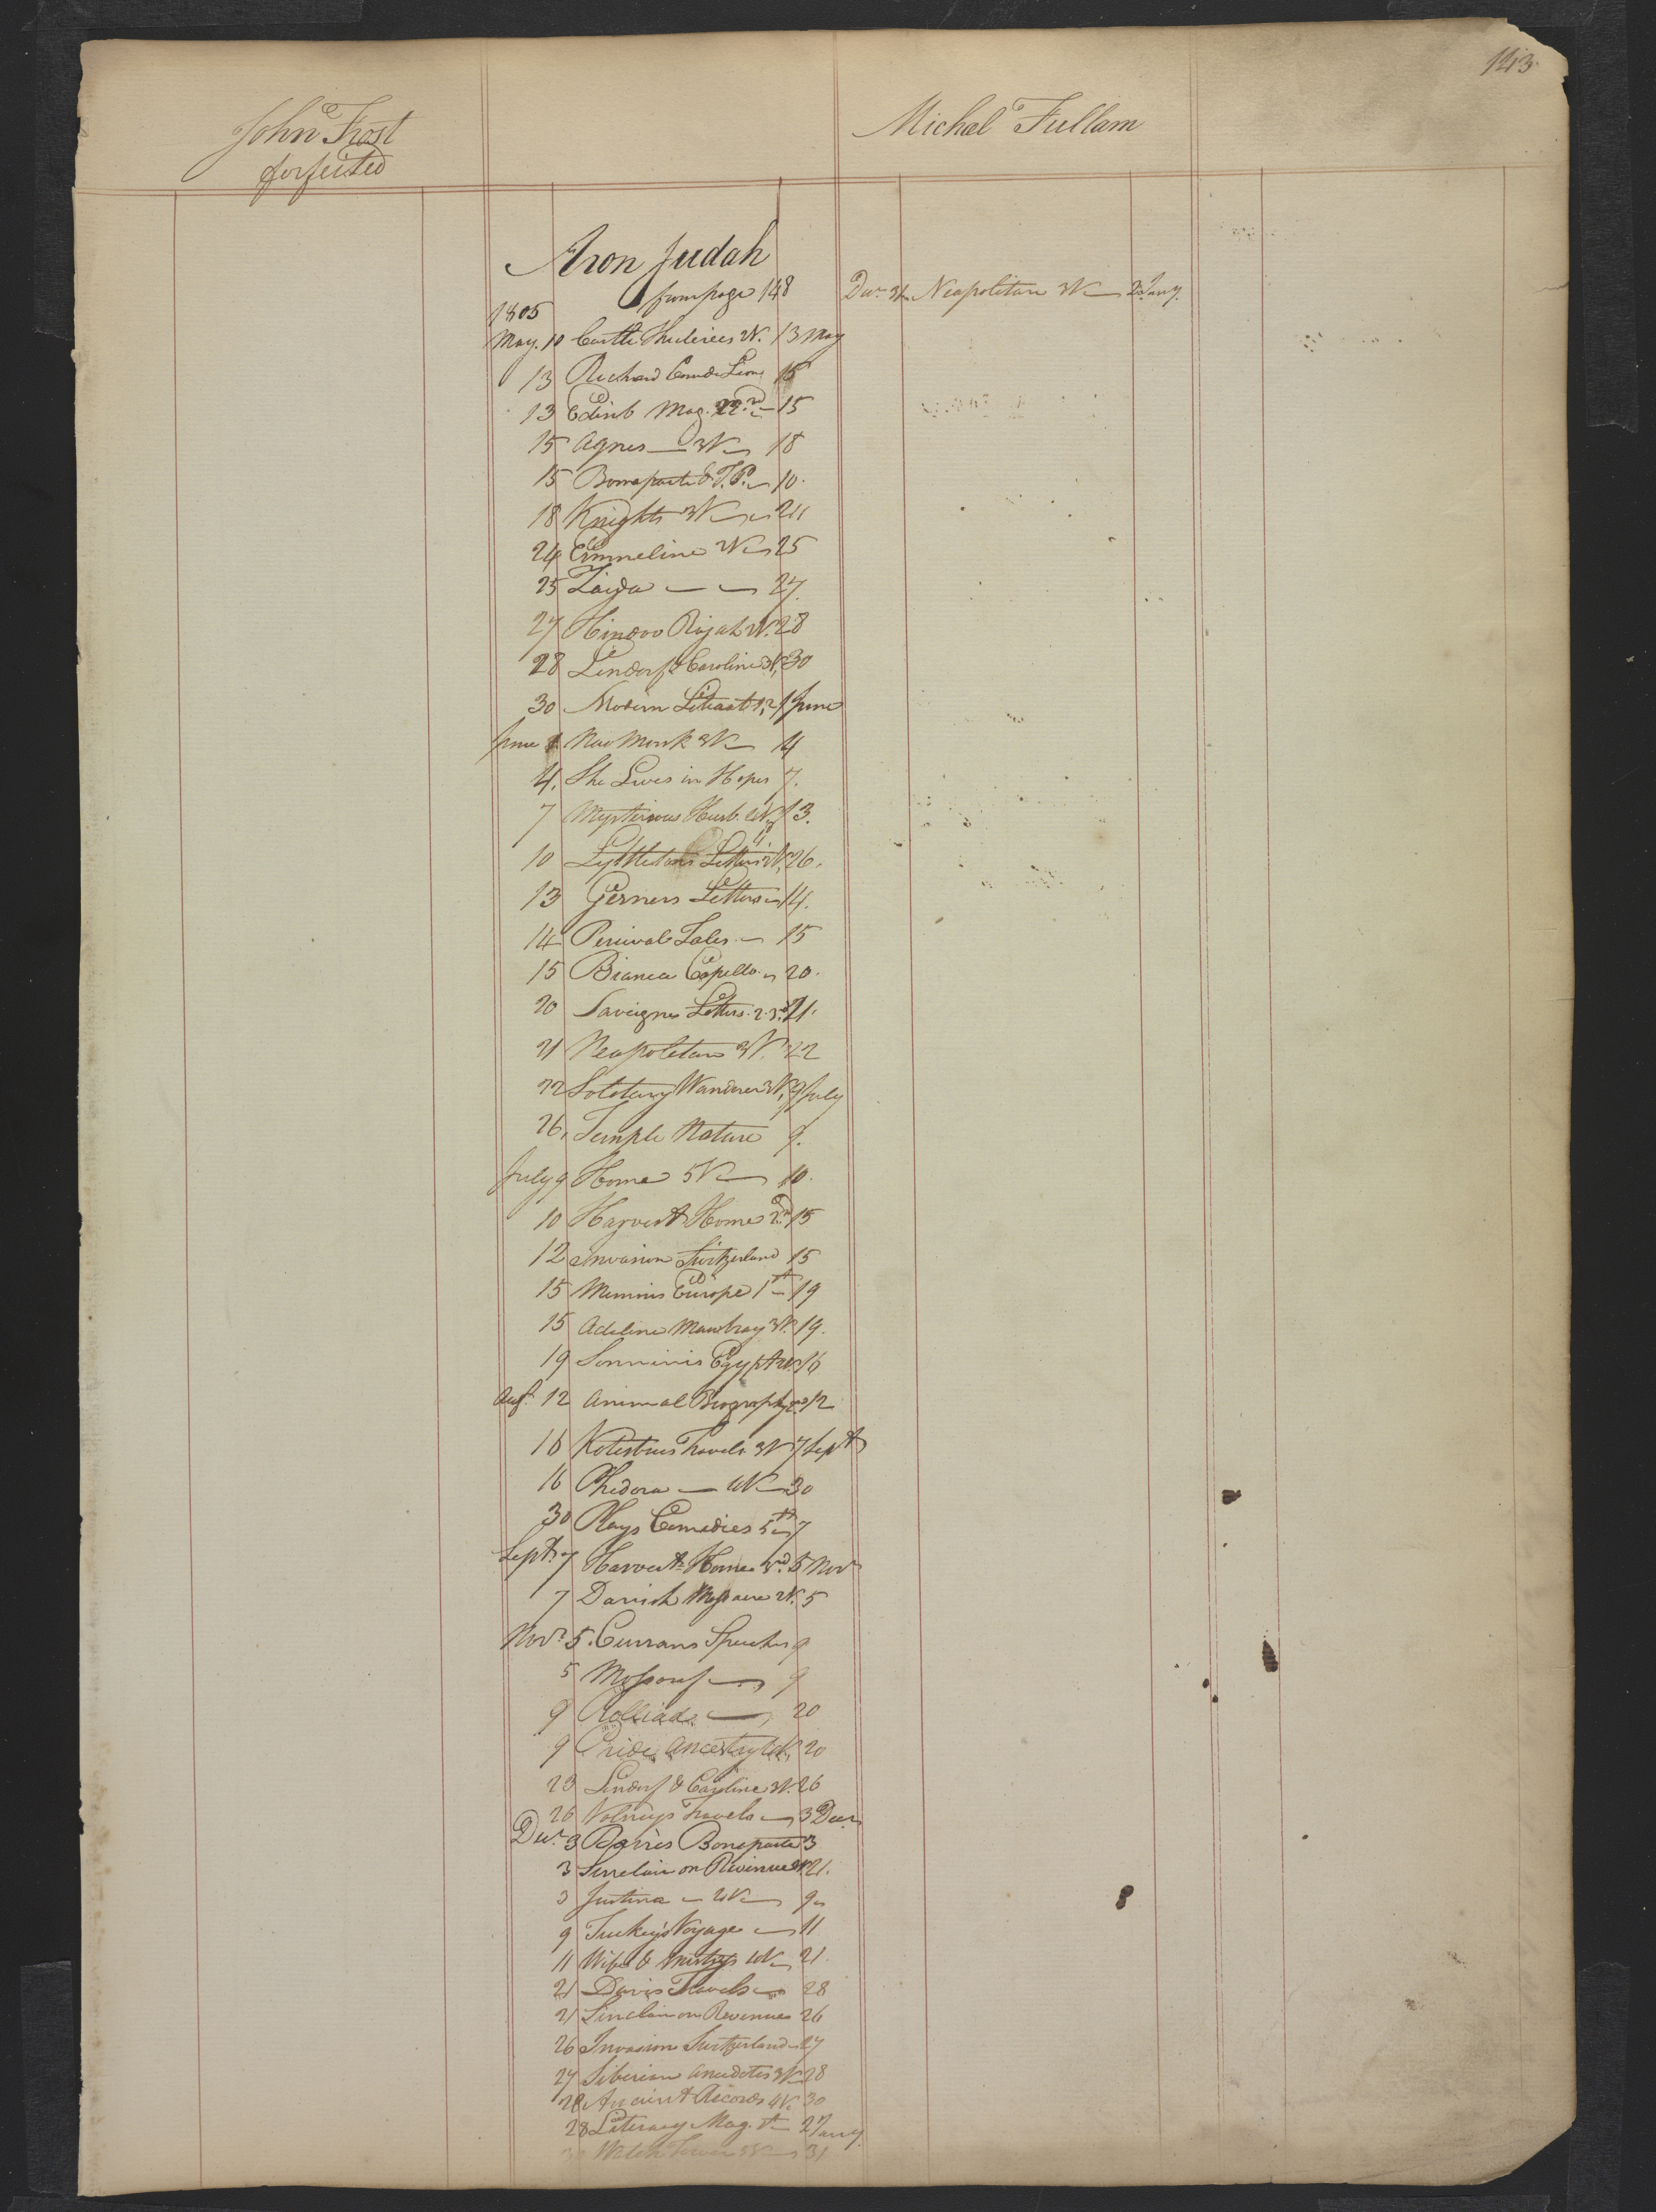 143
John Frost
forfeited
Michal Fullam
Aron Judah
from page 148
1805
Decr. 31 Neapolitan 3V 2 Jany.
May. 10 Castle Thuleries 2V. 13 May
13 Richard Coeur de Lion 15
13 Edinb Mag. 22nd 15
15 Agnes 3V 18
15 Bonaparte & F.P. 10.
18 Knights 3V 24
24 Emmeline 2V 25
25 Zaida 27.
27 Hindoo Rajah 2V. 28
28 Lindorf & Caroline 3V, 30
30 Modern Literat 1,2 1 June
June 1 New Monk 3V 4
4. She Lives in Hopes 7.
7 Mysterious Husb. 4V 13.
10 Lyttletons Letters 2V. 26.
13 Gesners Letters 14.
14 Percivals Tales 15
15 Bianca Capello 20.
20 Saveignes Letters. 2.3d. 21.
21 Neapolitan 3V. 22
22 Solotary Wanderer 3V, 9 July
26. Temple Nature 9.
July 9 Home 5V 10.
10 Harvest Home 2d 15
12 Invasion Switzerland 15
15 Memoirs Europe 1st 19
15 Adeline Mowbray 3V. 19.
19 Sonninis Egypt 2V. 16
Augt. 12 Animal Biography 2d 12
16 Kotesbues Travels 3V 7 Sept
16 Phedora 4V 30
30 Plays Comedies 5th 7
Sept. 7 Harvest Home 3rd. 5 Novr
7 Danish Massacre 2V. 5
Novr. 5. Currans Speeches 9
5 Mossouf 9
9 Rolliad 20
9 Pride Ancestry 4V, 20
23 Lindorf & Caroline 3V. 26
26 Volneys Travels 3 Decr.
Decr. 3 Pagnes Bonaparte 3
3 Sinclair on Revenue 21.
3 Justina 2V 9
9 Tuckeys Voyage 11
11 Wife & Mistress 4V 21.
21 Davis Travels 28
21 Sinclair on Revenue 26
26 Invasion Switzerland 27
27 Siberian Anecdotes 3V 28
28 Ancient Records 4V. 30
28 Literary Mag. 1st 2 Jany.
Watch Tower 31